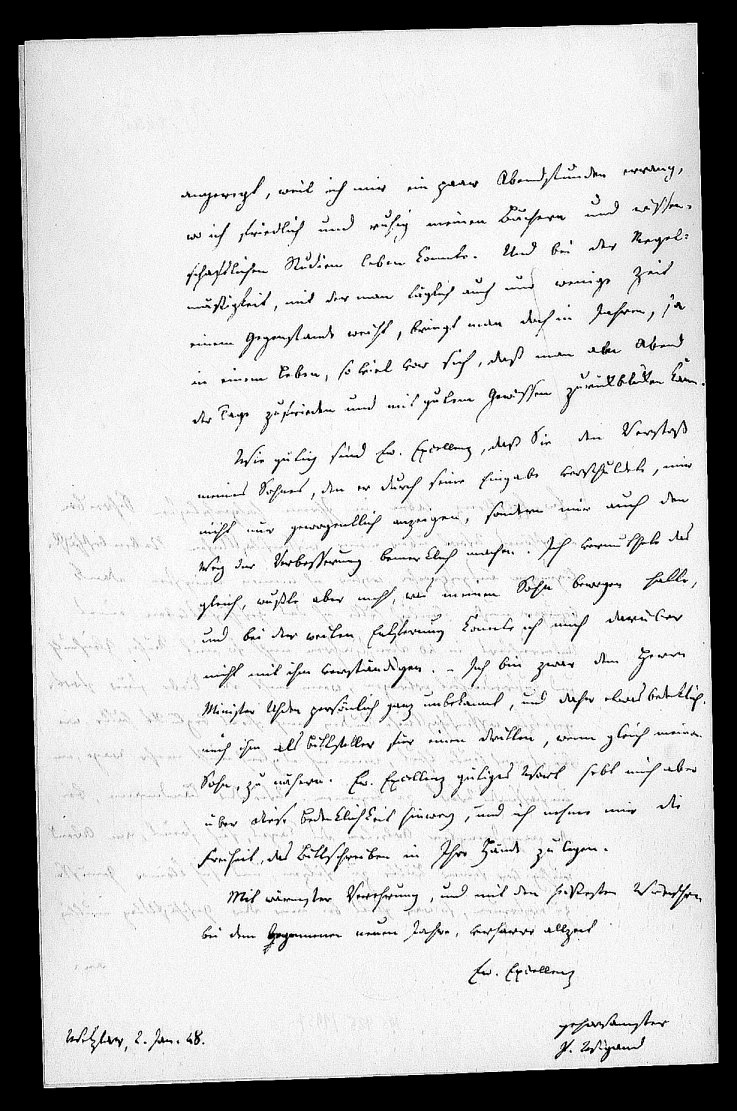 angeregt, weil ich mir ein paar Abendstunden errang,
wo ich friedlich und ruhig meinen Büchern und wissen-
schaftlichen Studien leben konnte. Und bei der Regel-
mäßigkeit, mit der man täglich auch nur wenige Zeit
einem Gegenstande weiht, bringt man doch in Jahren, ja
in einem Leben, so viel vor sich, daß man am Abend
der Tage zufrieden und mit gutem Gewissen zurückblicken kann.
Wie gütig sind Ew. Excellenz, daß Sie den Verstoß
meines Sohnes, den er durch seine Eingabe verschuldete, mir
nicht nur gewogentlich anzeigen, sondern mir auch den
Weg der Verbesserung bemerklich machen. Ich vermuthete das
gleich, wußte aber nicht, was meinen Sohn bewogen hatte,
und bei der weiten Entfernung konnte ich mich darüber
nicht mit ihm verständigen. – Ich bin zwar dem Herrn
Minister Uhden persönlich ganz unbekannt, und daher etwas bedenklich,
mich ihm als Bittsteller für einen dritten, wenn gleich meinen
Sohn, zu nähern. Ew. Excellenz gütiges Wort hebt mich aber
über diese Bedenklichkeit hinweg, und ich nehme mir die
Freiheit, das Bittschreiben in Ihre Hände zu legen.
Mit wärmster Verehrung, und mit den heißesten Wünschen
bei dem begonnenen neuen Jahre, verharre allzeit
Ew. Excellenz
gehorsamster
P. Wigand
Wetzlar, 2. Jan. 48.